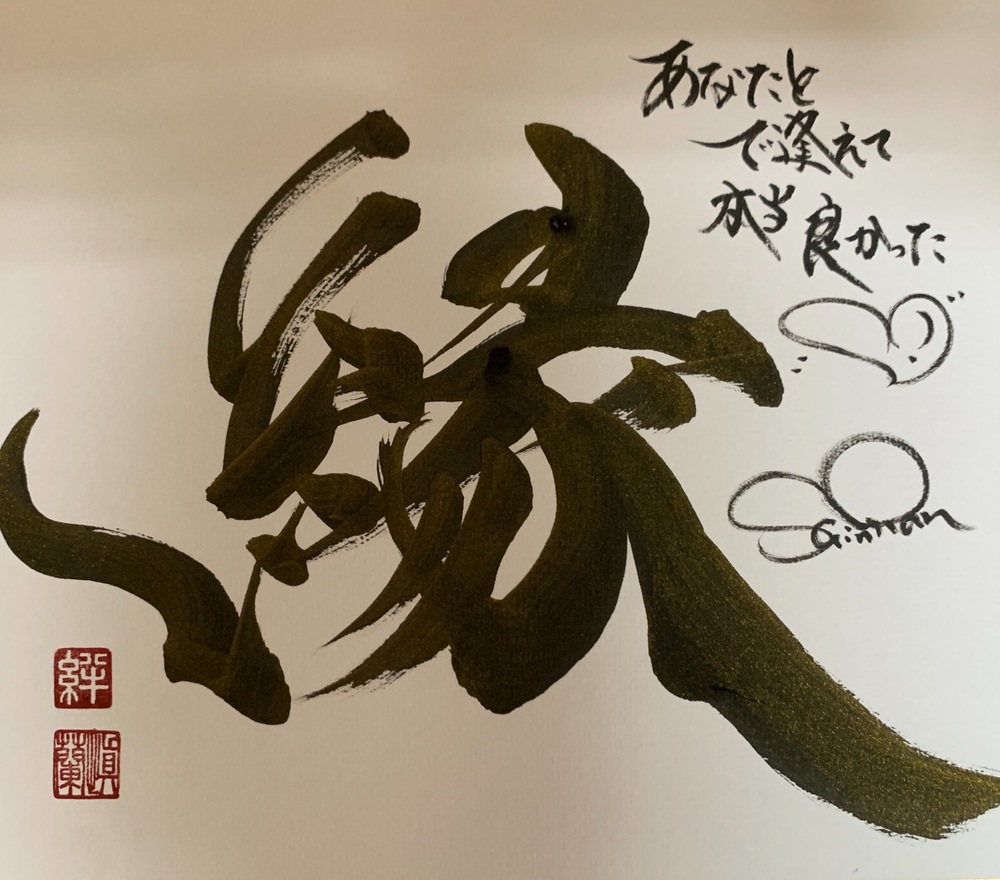 縁
あなたと
で逢えて
本当良かった
Ginran
絆